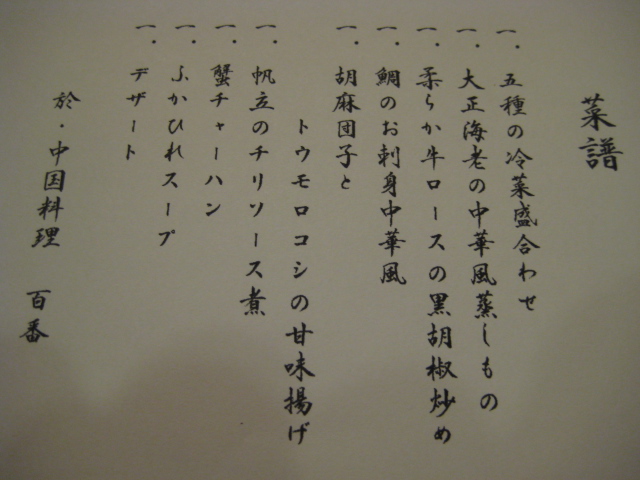 菜譜
一.五種の冷菜盛合わせ
一.大正海老の中華風蒸しもの
一.柔らか牛ロースの黒胡椒炒め
一.鯛のお刺身中華風
一.胡麻団子と
トウモロコシの甘味揚げ
一.帆立のチリソース煮
一.蟹チャーハン
一.ふかひれスープ
一.デザート
於・中国料理 百番